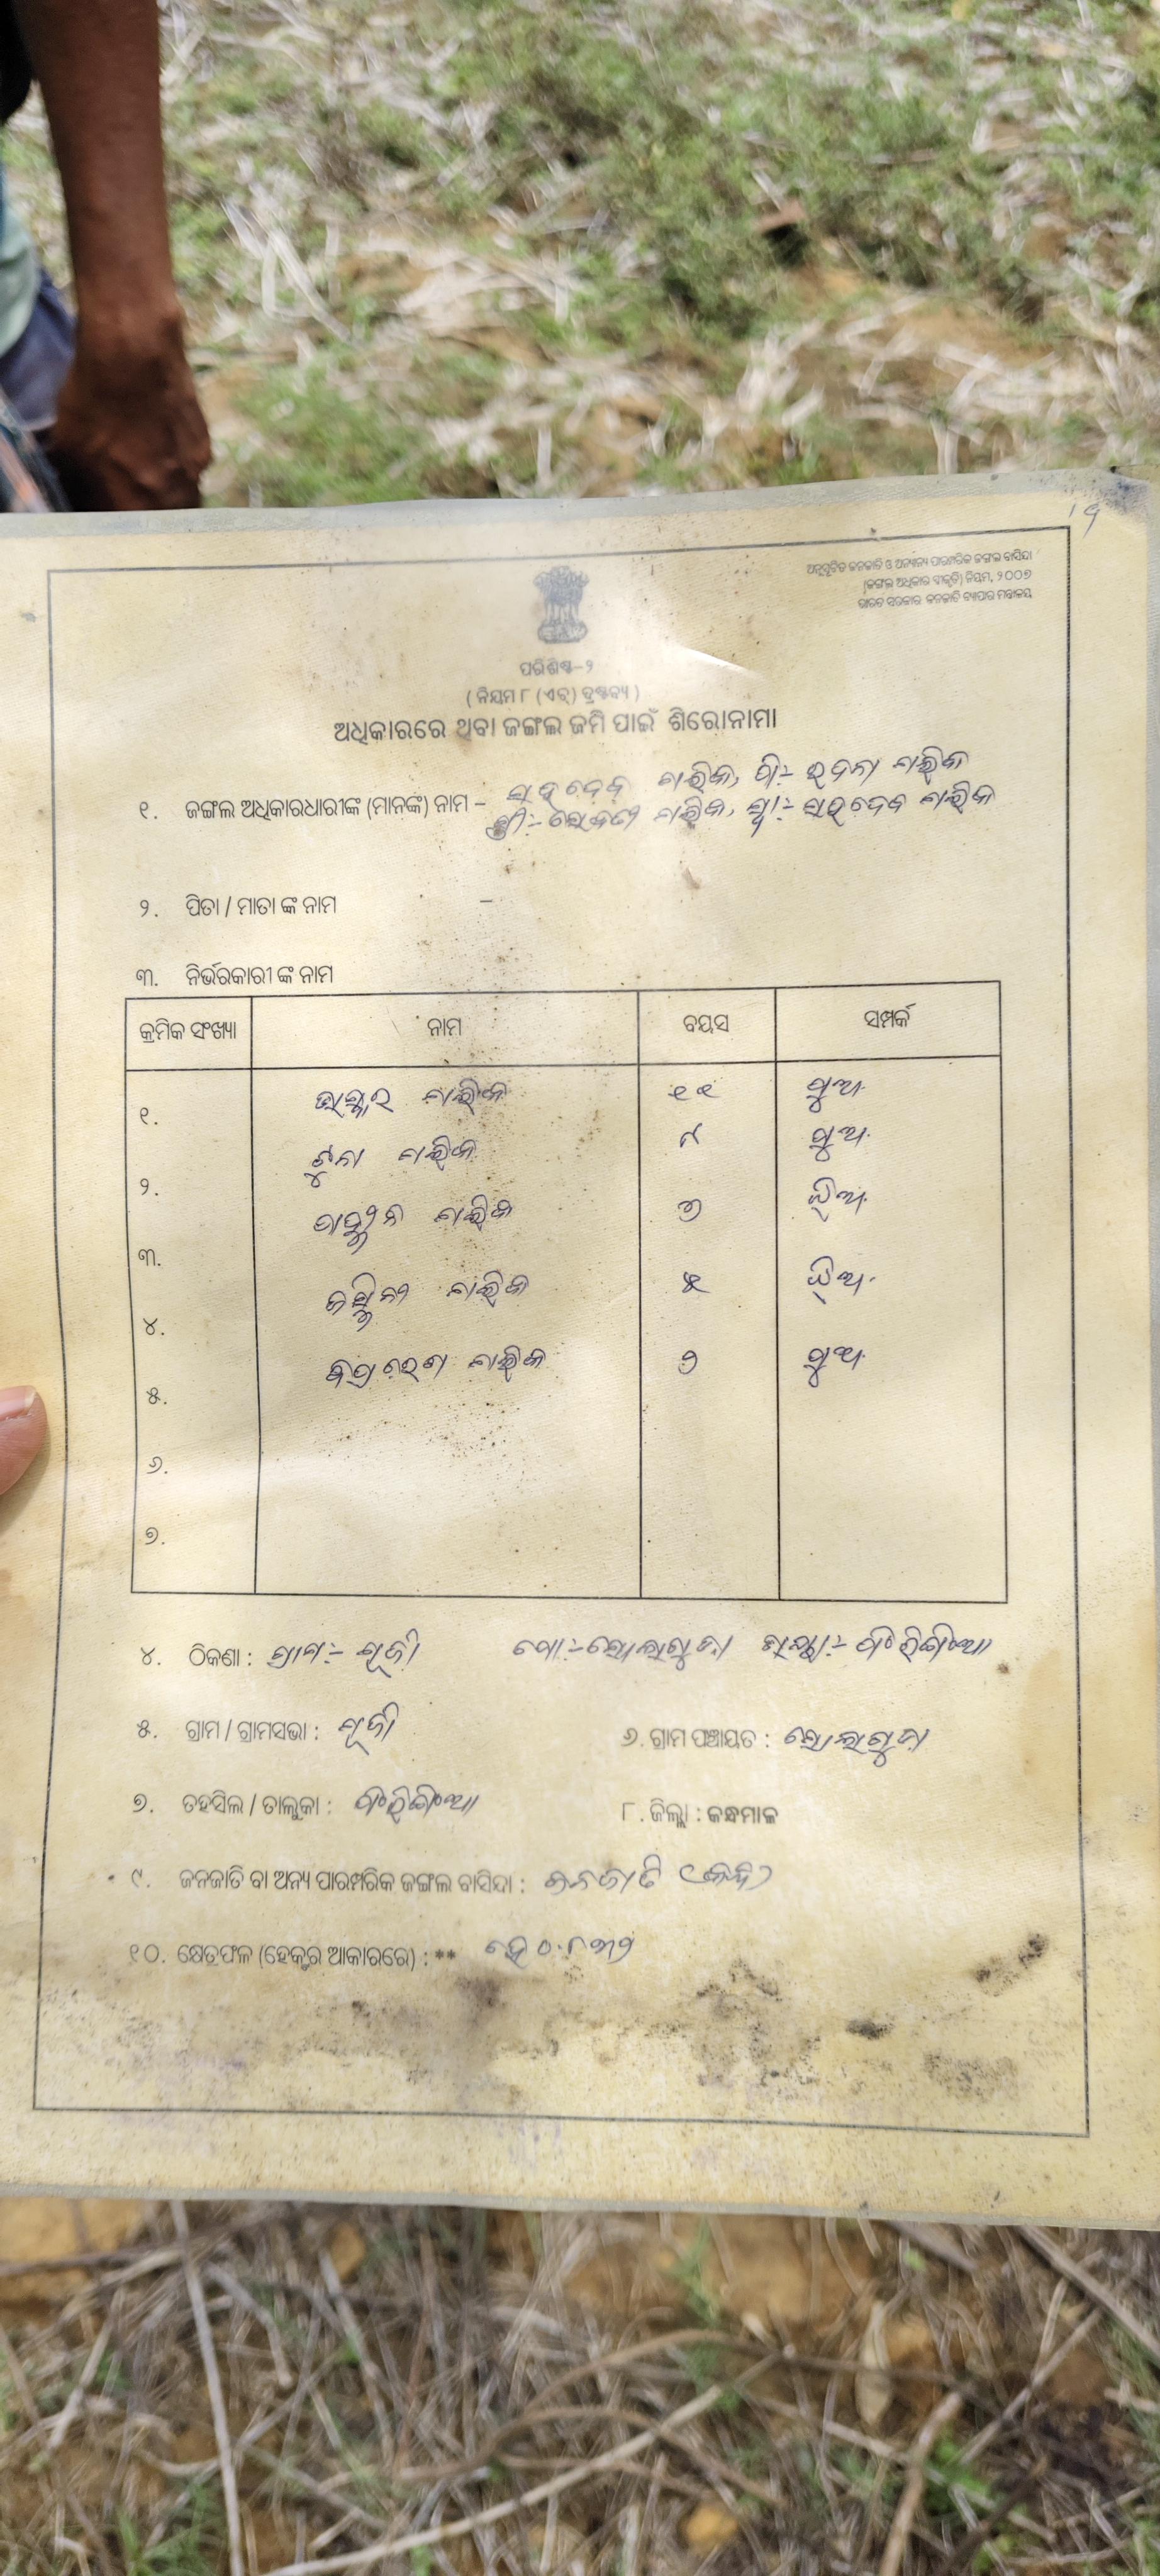 ୧୩
ଅନୁସୂଚିତ ଜନଜାତି ଓ ଅନ୍ୟାନ୍ୟ ପାରମ୍ପରିକ ଜଙ୍ଗଲ ବାସିନ୍ଦା
(ଜଙ୍ଗଲ ଅଧିକାର ସ୍ୱୀକୃତି) ନିୟମ, ୨୦୦୭
ଭାରତ ସରକାର ଜନଜାତି ବ୍ୟାପାର ମନ୍ତ୍ରାଳୟ
ପରିଶିଷ୍ଟ-୨
( ନିୟମ ୮ (ଏଚ୍) ଦ୍ରଷ୍ଟବ୍ୟ )
ଅଧିକାରରେ ଥିବା ଜଙ୍ଗଲ ଜମି ପାଇଁ ଶିରୋନାମା
୧. ଜଙ୍ଗଲ ଅଧିକାରଧାରୀଙ୍କ (ମାନଙ୍କ) ନାମ - ସହଦେବ ମଲ୍ଲିକ, ପି:-
ସ୍ତ୍ରୀ:- ମଲ୍ଲିକ, ସ୍ୱା:- ସହଦେବ ମଲ୍ଲିକ
୨. ପିତା / ମାତା ଙ୍କ ନାମ -
୩. ନିର୍ଭରକାରୀ ଙ୍କ ନାମ
କ୍ରମିକ ସଂଖ୍ୟା ନାମ ବୟସ ସମ୍ପର୍କ
୧. ଭାସ୍କର ମଲ୍ଲିକ ୧୧ ପୁଅ
୨. ଟୁନା ମଲ୍ଲିକ ୮ ପୁଅ
୩. ମଲ୍ଲିକ ୭ ଝିଅ
୪. ମଲ୍ଲିକ ୫ ଝିଅ
୫. ମଲ୍ଲିକ ୨ ପୁଅ
୬.
୭.
୪. ଠିକଣା : ଗ୍ରାମ:- ପୋ:- ଥାନା:- ଫିରିଙ୍ଗିଆ
୫. ଗ୍ରାମ / ଗ୍ରାମସଭା : ୬. ଗ୍ରାମ ପଞ୍ଚାୟତ :
୭. ତହସିଲ / ତାଲୁକା : ଫିରିଙ୍ଗିଆ ୮. ଜିଲ୍ଲା : କନ୍ଧମାଳ
୯. ଜନଜାତି ବା ଅନ୍ୟ ପାରମ୍ପରିକ ଜଙ୍ଗଲ ବାସିନ୍ଦା : ଜନଜାତି (କନ୍ଧ)
୧୦. କ୍ଷେତ୍ରଫଳ (ହେକ୍ଟର ଆକାରରେ) : ** ହେ ୦.୮୩୨